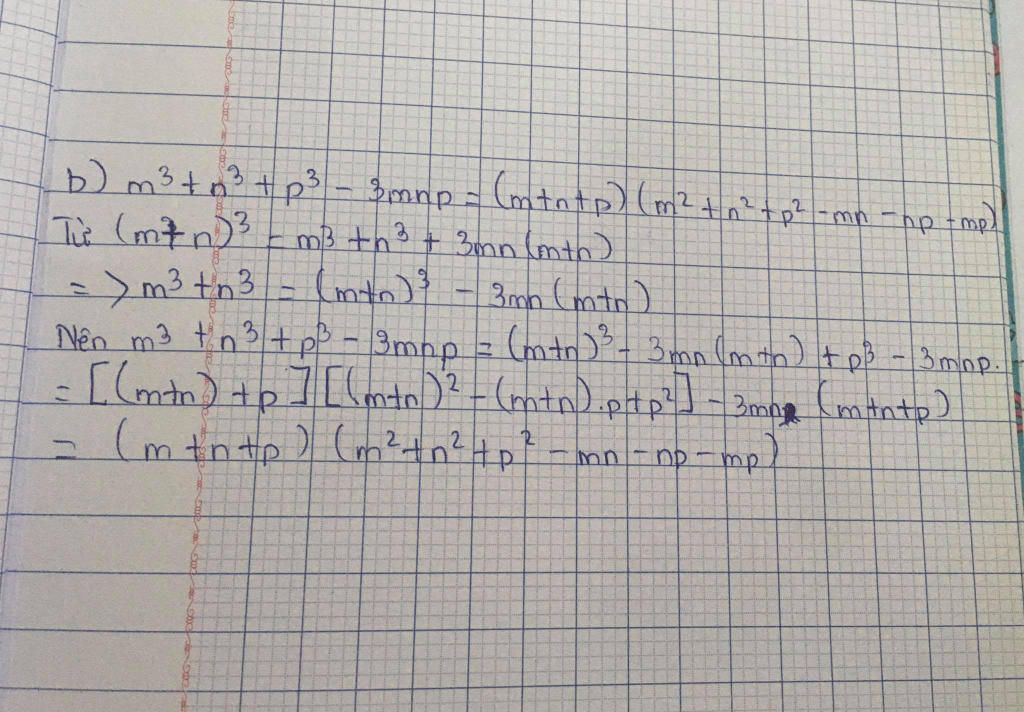 b) m³ + n³ + p³ - 3mnp = (m+n+p)(m² + n² + p² - mn - np - mp)
Từ (m+n)³ = m³ + n³ + 3mn(m+n)
=> m³ + n³ = (m+n)³ - 3mn(m+n)
Nên m³ + n³ + p³ - 3mnp = (m+n)³ - 3mn(m+n) + p³ - 3mnp.
= [(m+n) + p][(m+n)² - (m+n).p + p²] - 3mn (m+n+p)
= (m+n+p) (m² + n² + p² - mn - np - mp)